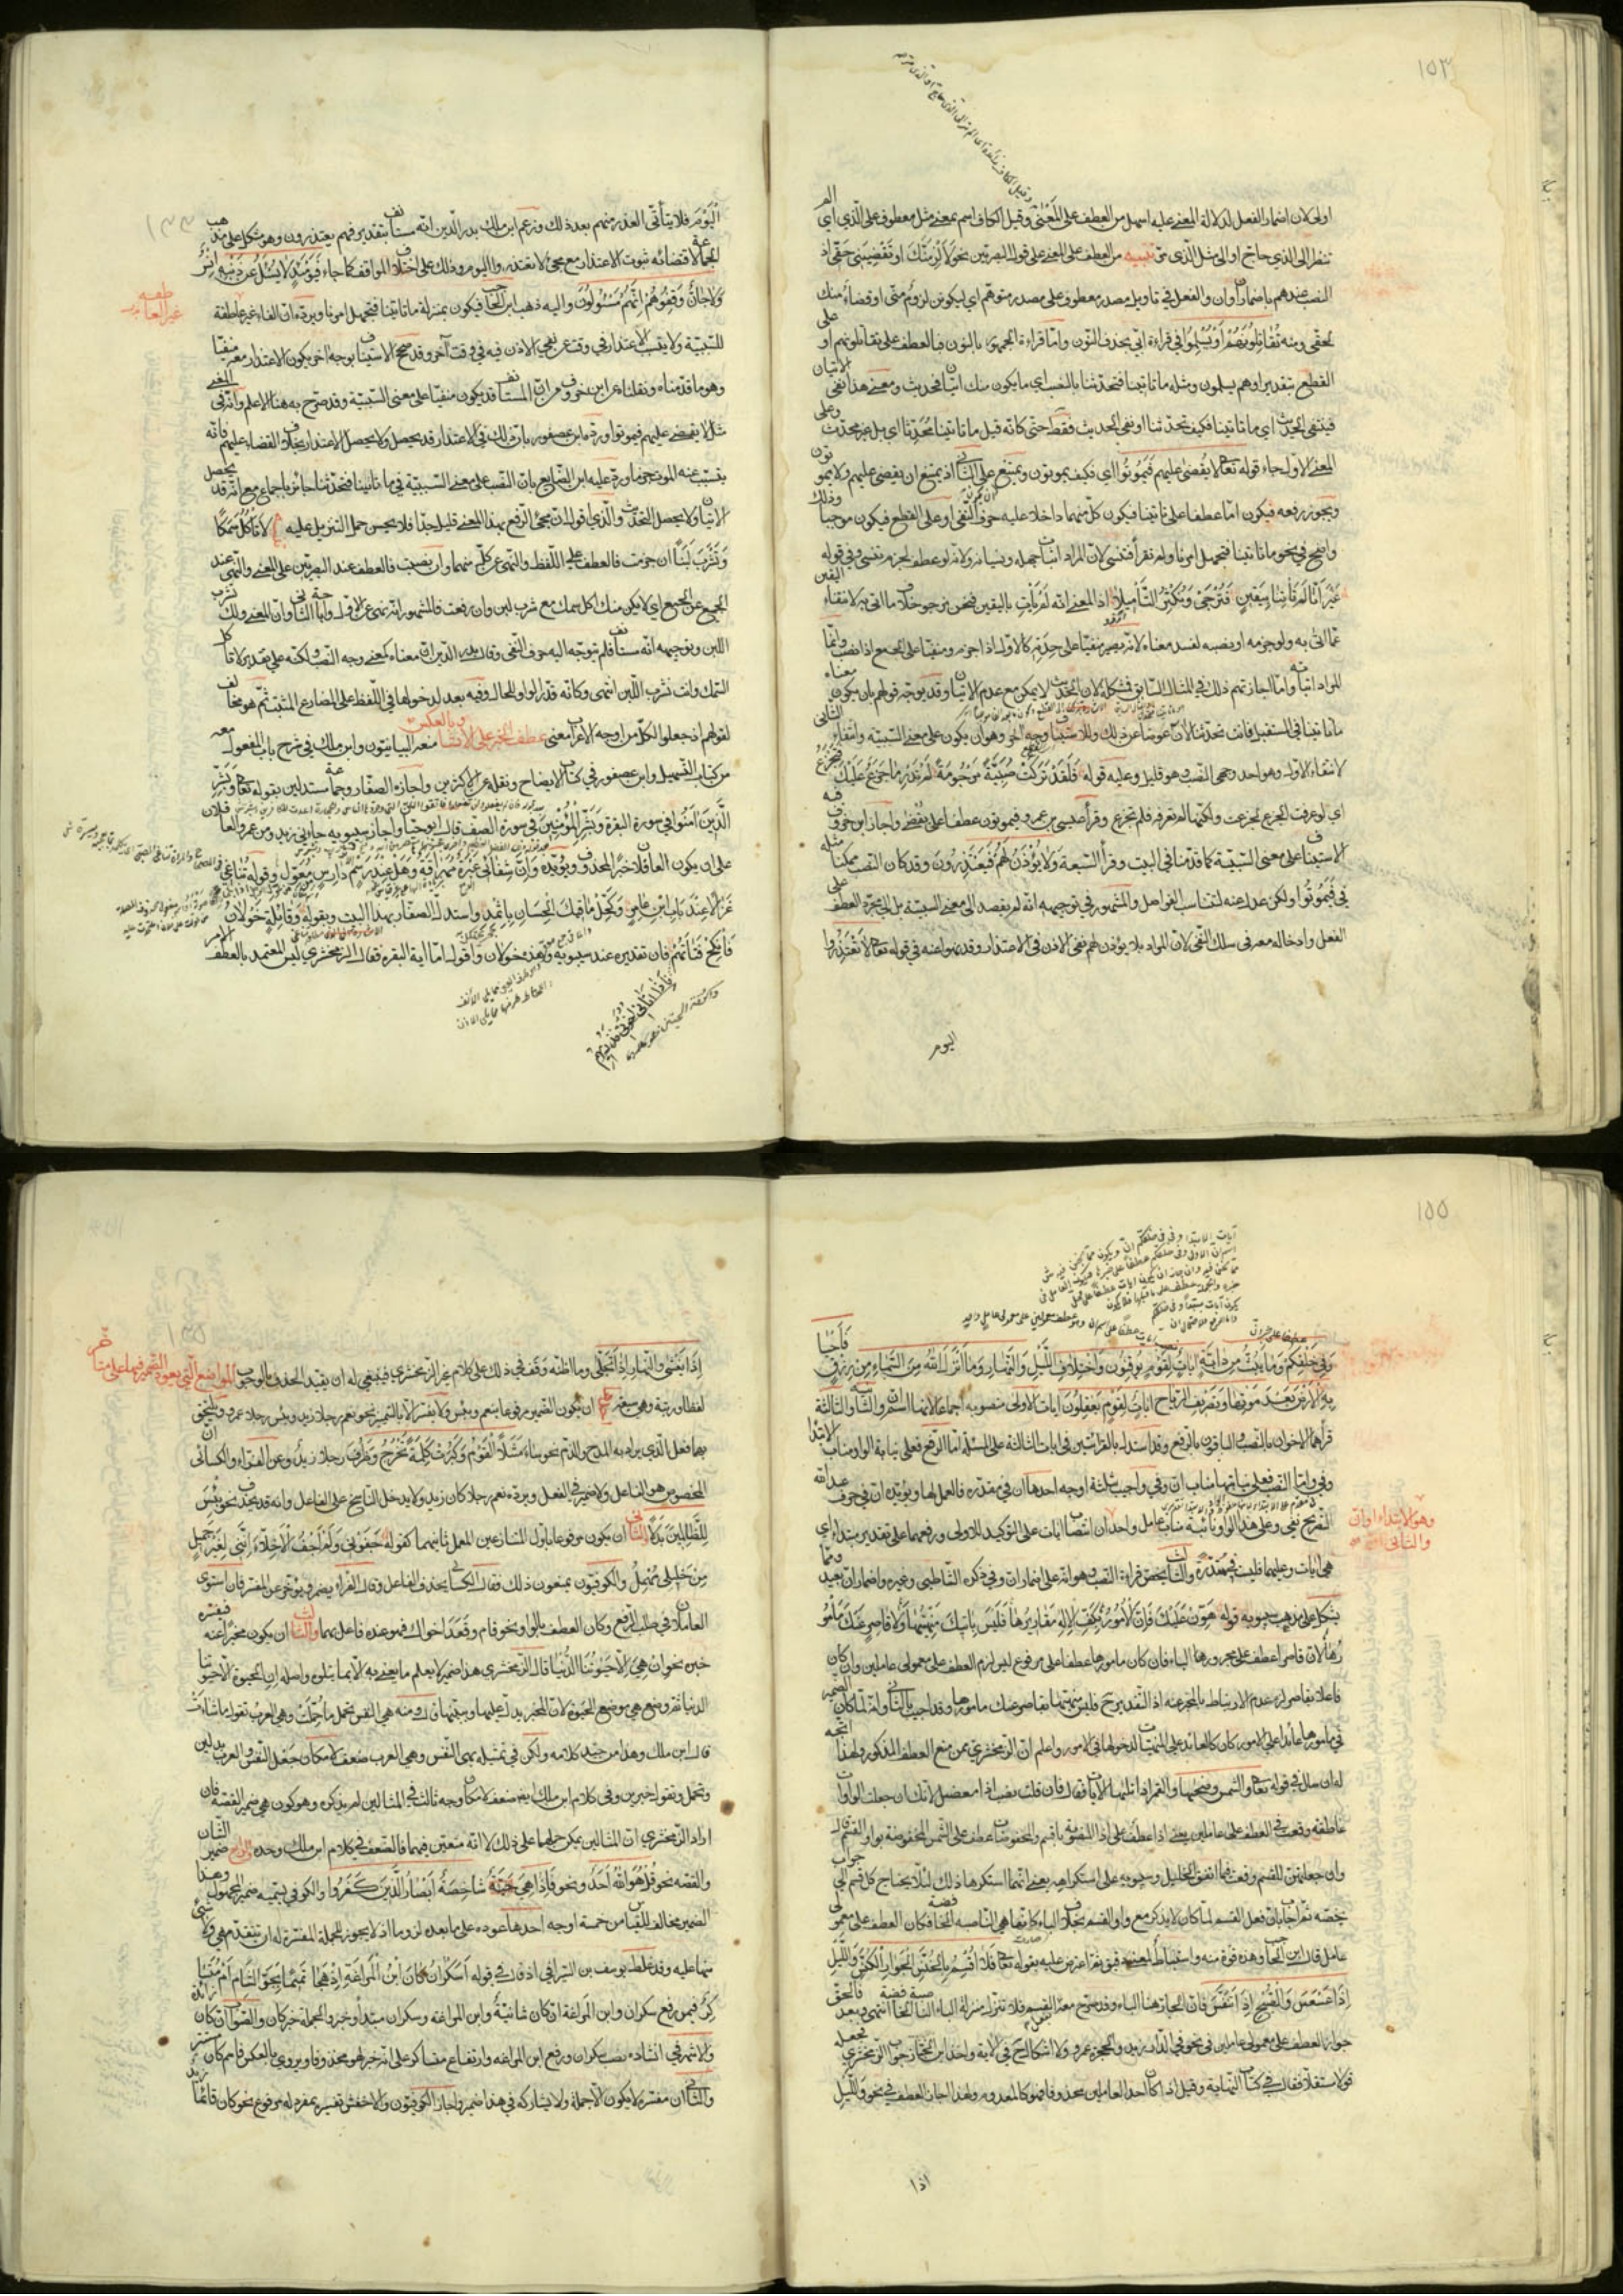 ١٥٣
اولى لان اضمار الفعل لدلالة المعنى عليه اسهل من العطف على المعنى وقيل الكاف اسم بمعنى مثل معطوف على الذي اي الم
تنظر الى الذي حاج او الى مثل الذي مر تنبيه من العطف على المعنى على قول البصريين نحو لالزمنك او تقضيني حقي اذ
النصب عندهم باضمار ان وان والفعل في تاويل مصدر معطوف على مصدر متوهم اي ليكونن لزوم مني او قضاء منك
لحقي ومنه تقاتلونهم او يسلموا في قراءة ابي بحذف النون واما قراءة الجمهور بالنون فبالعطف على تقاتلونهم او على
القطع بتقدير او هم يسلمون ومثله ما تاتينا فتحدثنا بالنصب اي ما يكون منك اتيان فحديث ومعنى هذا نفي الاتيان
فينتفي الحديث اي ما تاتينا فكيف تحدثنا او نفي الحديث فقط حتى كانه قيل ما تاتينا محدثا اي بل غير محدث وعلى
المعنى الاول جاء قوله تعالى لا يقضى عليهم فيموتوا اي فكيف يموتون ويمتنع على الثاني اذ يمتنع ان يقضى عليهم ولا يموتون
ويجوز رفعه فيكون اما عطفا على تاتينا فيكون كل منهما داخلا عليه حرف النفي او على القطع فيكون موجبا وذلك
واضح في نحو ما تاتينا فتجهل امرنا ولم تقرأ فتنسى لان المراد اثبات جهله ونسيانه ولانه لو عطف لجزم تنسى وفي قوله
غير انا لم تاتنا بيقين فنرجي ونكثر التأميلا اذ المعنى انه لم يأت باليقين فنحن نرجو خلاف ما اتى به لانتفاء اليقين
عما اتى به ولو جزمه او نصبه لفسد معناه لانه يصير منفيا على حدته كالاول اذا جزم ومنفيا على الجمع اذا نصب وانما
المراد اثباته واما اجازتهم ذلك في المثال السابق فمشكلة لان الحديث لا يمكن مع عدم الاتيان وقد يوجه قولهم بان يكون معناه
ما تاتينا في المستقبل فانت تحدثنا الان عوضا عن ذلك وللاستيناف وجه اخر وهو ان يكون على معنى السببية وانتفاء الثاني
لانتفاء الاول وهو احد وجهي النصب وهو قليل وعليه قوله فلقد تركت صبية مرحومة لم تدر ما جزع عليك فتجزع
اي لو عرفت الجزع لجزعت ولكنها لم تعرفه فلم تجزع وقرأ عيسى بن عمر فيموتون عطفا على يقضى واجاز ابن خروف فيه
الاستيناف على معنى السببية كما قدمنا في البيت وقرأ السبعة ولا يؤذن لهم فيعتذرون وقد كان النصب ممكنا مثله
في فيموتوا ولكن عدل عنه لتناسب الفواصل والمشهور في توجيهه انه لم يقصد الى معنى السببية بل الى مجرد العطف على
الفعل وادخاله معه في سلك النفي لان المراد بلا يؤذن لهم نفي الاذن في الاعتذار وقد نهوا عنه في قوله تعالى لا تعتذروا
اليوم
اليوم فلا يتأتى العذر منهم بعد ذلك وزعم ابن مالك بدر الدين انه مستأنف بتقدير فهم يعتذرون وهو مشكل على مذهب
الجماعة لاقتضائه ثبوت الاعتذار مع مجيء لا تعتذروا اليوم وذلك على اختلاف المواقف كما جاء فيومئذ لا يسئل عن ذنبه انس
ولا جان وقفوهم انهم مسئولون واليه ذهب ابن الحاجب فيكون بمنزلة ما تاتينا فتجهل امرنا ويرده ان الفاء غير عاطفة
للسببية ولا يتسبب الاعتذار في وقت عن نفي الاذن فيه في وقت آخر وقد صح الاستيناف بوجه آخر يكون الاعتذار معه منفيا
وهو ما قدمناه ونقلناه عن ابن خروف من ان المستأنف قد يكون منفيا على معنى السببية وقد صرح به هنا الاعلم وانه في المعنى
مثل لا يقضى عليهم فيموتوا ورده ابن عصفور بان الاذن في الاعتذار قد يحصل ولا يحصل الاعتذار بخلاف القضاء عليهم فانه
يتسبب عنه الموت جزما ورد عليه ابن الضايع بان النصب على معنى السببية في ما تاتينا فتحدثنا جائز باجماع مع انه قد يحصل
الاتيان ولا يحصل التحديث والذي اقول ان مجيء الرفع بهذا المعنى قليل جدا فلا يحسن حمل التنزيل عليه لا تأكل سمكا
وتشرب لبنا ان جزمت فالعطف على اللفظ والنهي عن كل منهما وان نصبت فالعطف عند البصريين على المعنى والنهي عند
الجميع عن الجمع اي لا يكن منك اكل سمك مع شرب لبن وان رفعت فالمشهور انه نهي عن الاول واباحة الثاني وان المعنى ولك شرب
اللبن وتوجيهه انه مستأنف فلم يتوجه اليه حرف النهي وقال بدر الدين ان معناه كمعنى وجه النصب ولكنه على تقدير لا تأكل
السمك وانت تشرب اللبن انتهى وكانه قدر الواو للحال وفيه بعد لدخولها في اللفظ على المضارع المثبت ثم هو مخالف
لقولهم اذ جعلوا لكل من اوجه الاعراب معنى عطف الخبر على الانشاء وبالعكس منعه البيانيون وابن مالك في شرح باب المفعول معه
من كتاب التسهيل وابن عصفور في كتاب الايضاح ونقله عن الاكثرين واجازه الصفار وجماعة مستدلين بقوله تعالى وبشر
الذين آمنوا في سورة البقرة وبشر المؤمنين في سورة الصف قال ابو حيان واجاز سيبويه جاءني زيد ومن عمرو العاقلان
على ان يكون العاقلان خبرا لمحذوف ويؤيده وان شفائي عبرة مهراقة وهل عند رسم دارس من معول وقوله تناغي
غزالا عند باب ابن عامر وكحل ماقيك الحسان باثمد واستدل الصفار بهذا البيت وبقوله وقائلة خولان
فانكح فتاتهم فان تقديره عند سيبويه هذه خولان واقول اما آية البقرة فقال الزمخشري ليس المعتمد بالعطف الامر
١٥٥
وفي خلقكم وما يبث من دابة آيات لقوم يوقنون واختلاف الليل والنهار وما انزل الله من السماء من رزق فاحيا
به الارض بعد موتها وتصريف الرياح آيات لقوم يعقلون آيات الاولى منصوبة اجماعا لانها اسم ان والثانية والثالثة
قرأهما الاخوان بالنصب والباقون بالرفع وقد استدل بالقرائتين في آيات الثالثة على المسئلة اما الرفع فعلى نيابة الواو مناب الابتداء
وفي واما النصب فعلى نيابتها مناب ان وفي واجيب بثلاثة اوجه احدها ان في مقدرة فالعمل لها ويؤيده ان في حرف عبد الله
التصريح بفي وعلى هذا الواو نائبة مناب عامل واحد ان انتصاب آيات على التوكيد للاولى ورفعها على تقدير مبتدا اي
وهو الابتداء او ان
والثاني
هي آيات وعليهما فليست في مقدرة والثالث يخص قراءة النصب وهو انه على اضمار ان وفي ذكره الشاطبي وغيره واضمار ان بعيد ومما
يشكل على مذهب سيبويه قوله هون عليك فان الامور بكف الاله مقاديرها فليس باتيك منهيها ولا قاصر عنك مأمو
رها لان قاصر اعطف على مجرور الباء فان كان مامورها عطفا على مرفوع ليس لزم العطف على معمولي عاملين وان كان
فاعلا بقاصر لزم عدم الارتباط بالمخبر عنه اذ التقدير ح فليس منهيها بقاصر عنك مامورها وقد اجيب بالثاني وانه لما كان الضمير
في مامورها عائدا على الامور كان كالعائد على المنهيات لدخولها في الامور واعلم ان الزمخشري ممن منع العطف المذكور ولهذا اتجه
له ان سال في قوله تعالى والشمس وضحيها والقمر اذا تليها الآيات فقال فان قلت نصب اذا معضل لانك ان جعلت الواوات
عاطفة وقعت في العطف على عاملين يعني اذا عطف على اذا المنصوبة باقسم والمخفوضات عطف على الشمس المخفوضة بواو القسم قال
وان جعلتهن للقسم وقعت فيما اتفق الخليل وسيبويه على استكراهه يعني انهما استكرها ذلك لئلا يحتاج كل قسم الى جواب
يخصه ثم اجاب بان فعل القسم لما كان لا يذكر مع واو القسم بخلاف الباء كانها هي الناصبة الخافضة فكان العطف على معمولي
عامل قال ابن الحاجب وهذه قوة منه واستنباط لمعنى دقيق ثم اعترض عليه بقوله تعالى فلا اقسم بالخنس الجوار الكنس والليل
اذا عسعس والصبح اذا تنفس فان الجار هنا الباء وقد صرح معه القسم فلا تنزل منزلة الباء الناصبة الخافضة انتهى وبعد فالحق
جواز العطف على معمولي عاملين في نحو في الدار زيد والحجرة عمرو ولا اشكال ح في الآية واخذ ابن الخباز جواب الزمخشري فجعله
قولا مستقلا فقال في كتاب النهاية وقيل اذا كان احد العاملين محذوفا فهو كالمعدوم ولهذا جاز العطف في نحو والليل
اذا
اذا يغشى والنهار اذا تجلى وما اظنه وقف في ذلك على كلام غير الزمخشري فينبغي له ان يقيد الحذف بالوجوب المواضع التي يعود الضمير فيها على متأخر
لفظا ورتبة وهي سبعة ان يكون الضمير مرفوعا بنعم وبئس ولا يفسر الا بالتمييز نحو نعم رجلا زيد وبئس رجلا عمرو ويلتحق
بهما فعل الذي يراد به المدح والذم نحو ساء مثلا القوم وكبرت كلمة تخرج وظرف رجلا زيد وعن الفراء والكسائي ان
المخصوص هو الفاعل ولا ضمير في الفعل ويرده نعم رجلا كان زيد ولا يدخل الناسخ على الفاعل وانه قد يحذف نحو بئس
للظالمين بدلا الثاني ان يكون مرفوعا باول المتنازعين المعمل ثانيهما كقوله جفوني ولم اجف الاخلاء انني لغير جميل
من خليلي مهمل والكوفيون يمنعون ذلك فقال الكسائي يحذف الفاعل وقال الفراء يضمر ويؤخر عن المفسر فان استوى
العاملان في طلب الرفع وكان العطف بالواو نحو قام وقعد اخواك فهو عنده فاعل بهما والثالث ان يكون مخبرا عنه فيفسره
خبره نحو ان هي الا حيوتنا الدنيا قال الزمخشري هذا ضمير لا يعلم ما يعنى به الا بما يتلوه واصله ان الحيوة الا حيوتنا
الدنيا ثم وضع هي موضع الحيوة لان الخبر يدل عليها ويبينها قال ومنه هي النفس تحمل ما حملت وهي العرب تقول ما شاءت
قال ابن مالك وهذا من جيد كلامه ولكن في تمثيله بهي النفس وهي العرب ضعف لامكان جعل النفس والعرب بدلين
وتحمل وتقول خبرين وفي كلام ابن مالك ايضا ضعف لامكان وجه ثالث في المثالين لم يذكره وهو كون هي ضمير القصة فان
اراد الزمخشري ان المثالين يمكن حملهما على ذلك لا انه متعين فيهما فالضعف في كلام ابن مالك وحده الرابع ضمير الشان
والقصة نحو قل هو الله احد ونحو فاذا هي شاخصة ابصار الذين كفروا والكوفي يسميه ضمير المجهول وهذا
الضمير مخالف للقياس من خمسة اوجه احدها عوده على ما بعده لزوما اذ لا يجوز للجملة المفسرة له ان تتقدم هي ولا شيء
منها عليه وقد غلط يوسف بن السيرافي اذ قال في قوله اسكران كان ابن المراغة اذ هجا تميما بجو الشام ام متساكر
فيمن رفع سكران وابن المراغة ان كان شانية وابن المراغة وسكران مبتدأ وخبر والجملة خبر كان والصواب ان كان زائدة
والاشهر في انشاده نصب سكران ورفع ابن المراغة وارتفاع متساكر على انه خبر لهو محذوفا ويروى بالعكس فاسم كان مستتر
والثاني ان مفسره لا يكون الا جملة ولا يشاركه في هذا ضمير واجاز الكوفيون والاخفش تفسيره بمفرد له مرفوع نحو كان قائما زيد